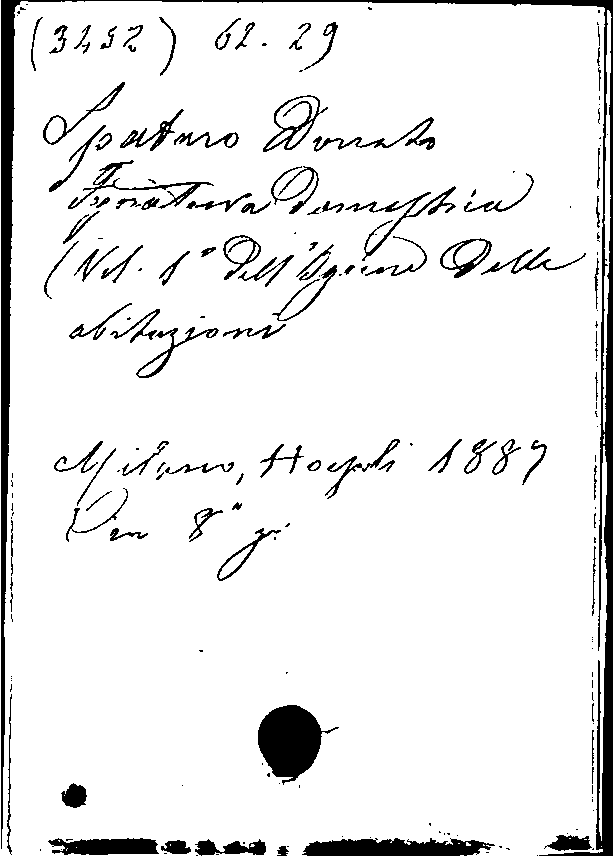 (3452) 62. 29
Spataro Donato
Fognatura Domestica
(Vol. 1° dell'Igiene delle
abitazioni
Milano, Hoepli 1887
in 8° p.